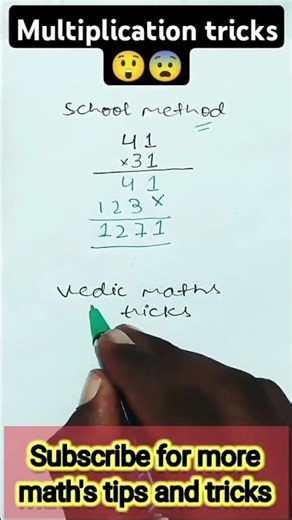 Multiplication tricks
😲😨
School method
41
×31
41
123×
1271
vedic maths
tricks
Subscribe for more
math's tips and tricks